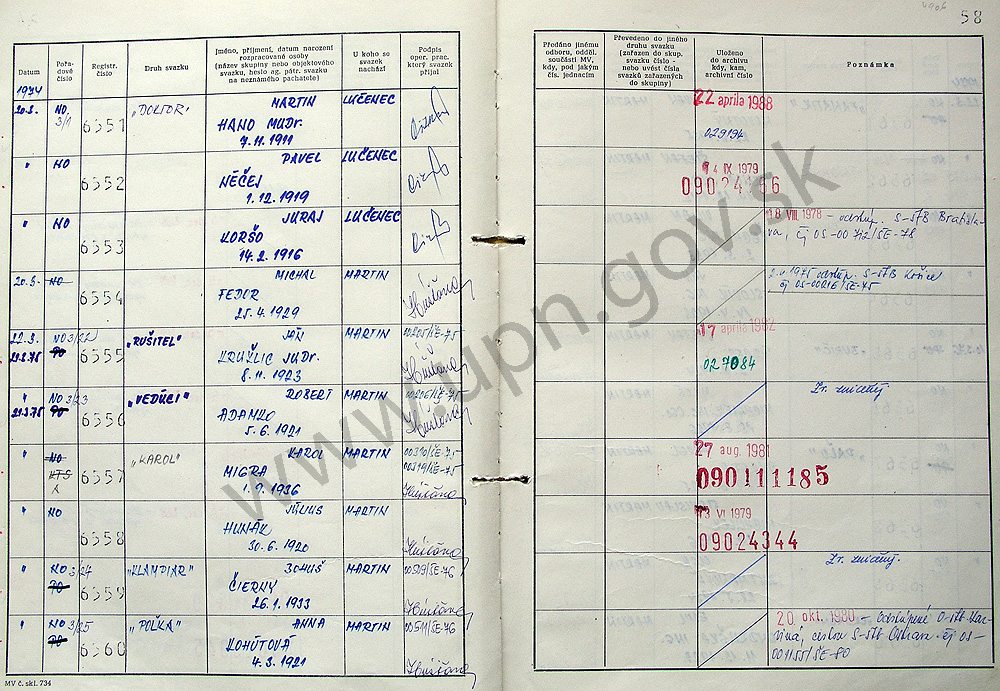 58
Datum
Pořadové číslo
Registr. číslo
Druh svazku
Jméno, příjmení, datum narození
rozpracované osoby
(název skupiny nebo objektového
svazku, heslo ag. pátr. svazku
na neznámého pachatele)
U koho se
svazek
nachází
Podpis
oper. prac.
který svazek
přijal
Předáno jinému
odboru, odděl.
součásti MV,
kdy, pod jakým
čís. jednacím
Převedeno do jiného
druhu svazku
(zařazen do skup.
svazku číslo -
nebo uvést čísla
svazků zařazených
do skupiny)
Uloženo
do archivu
kdy, kam,
archivní číslo
Poznámka
1974
20.3. NO 3/1 6551 "DOKTOR" MARTIN LUČENEC
HANO MUDr.
7.11.1911
22 aprila 1988
029194
" NO 6552 PAVEL LUČENEC
NĚČEJ
1.12.1919
14 IX 1979
" NO 6553 JURAJ LUČENEC
KORŠO
14.2.1916
18 VIII. 1978 - odstup. S-ŠTB Bratisla-
va, čj OS-00712/SE-78
20.3. NO 6554 MICHAL MARTIN
FEDOR
25.4.1929
1975 odstúp. S-ŠTB Košice
čj OS-00216/SE-75
22.3. NO 3/22 6555 "RUŠITEL" JÁN MARTIN 00205/SE-75
KRUŽLIC JUDr.
8.11.1923
17 aprila 1982
027084
" NO 3/23 6556 "VEDÚCI" ROBERT MARTIN 00206/SE-75
ADAMKO
5.6.1921
Zr. zničený
" NO KTS 6557 "KAROL" KAROL MARTIN 00310/SE-75
MIGRA 00319/SE-75
1.9.1936
27 aug. 1981
090111185
" NO 6558 JÚLIUS MARTIN
HUNÁK
30.6.1920
13 VI 1979
09024344
" NO 3/24 6559 "KLAMPIAR" BOHUŠ MARTIN 00509/SE-76
ČIERNY
26.1.1933
Zr. zničený.
" NO 3/25 6560 "POĽKA" ANNA MARTIN 00511/SE-76
KOHÚTOVÁ
4.3.1921
20 okt. 1980 - odstúpené O-ŠTB Kar-
viná, cestou S-ŠTB Ostrava - čj OS-
001155/SE-80
MV č. skl. 734
www.upn.gov.sk